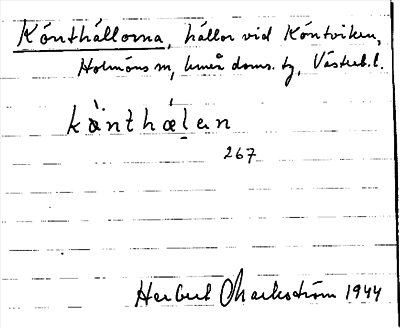 Kónthällorna, hällor vid Köntviken,
Holmöns sn, Umeå doms. tg, Västerb. l.
kànthálan
267
Herbert Markström 1944